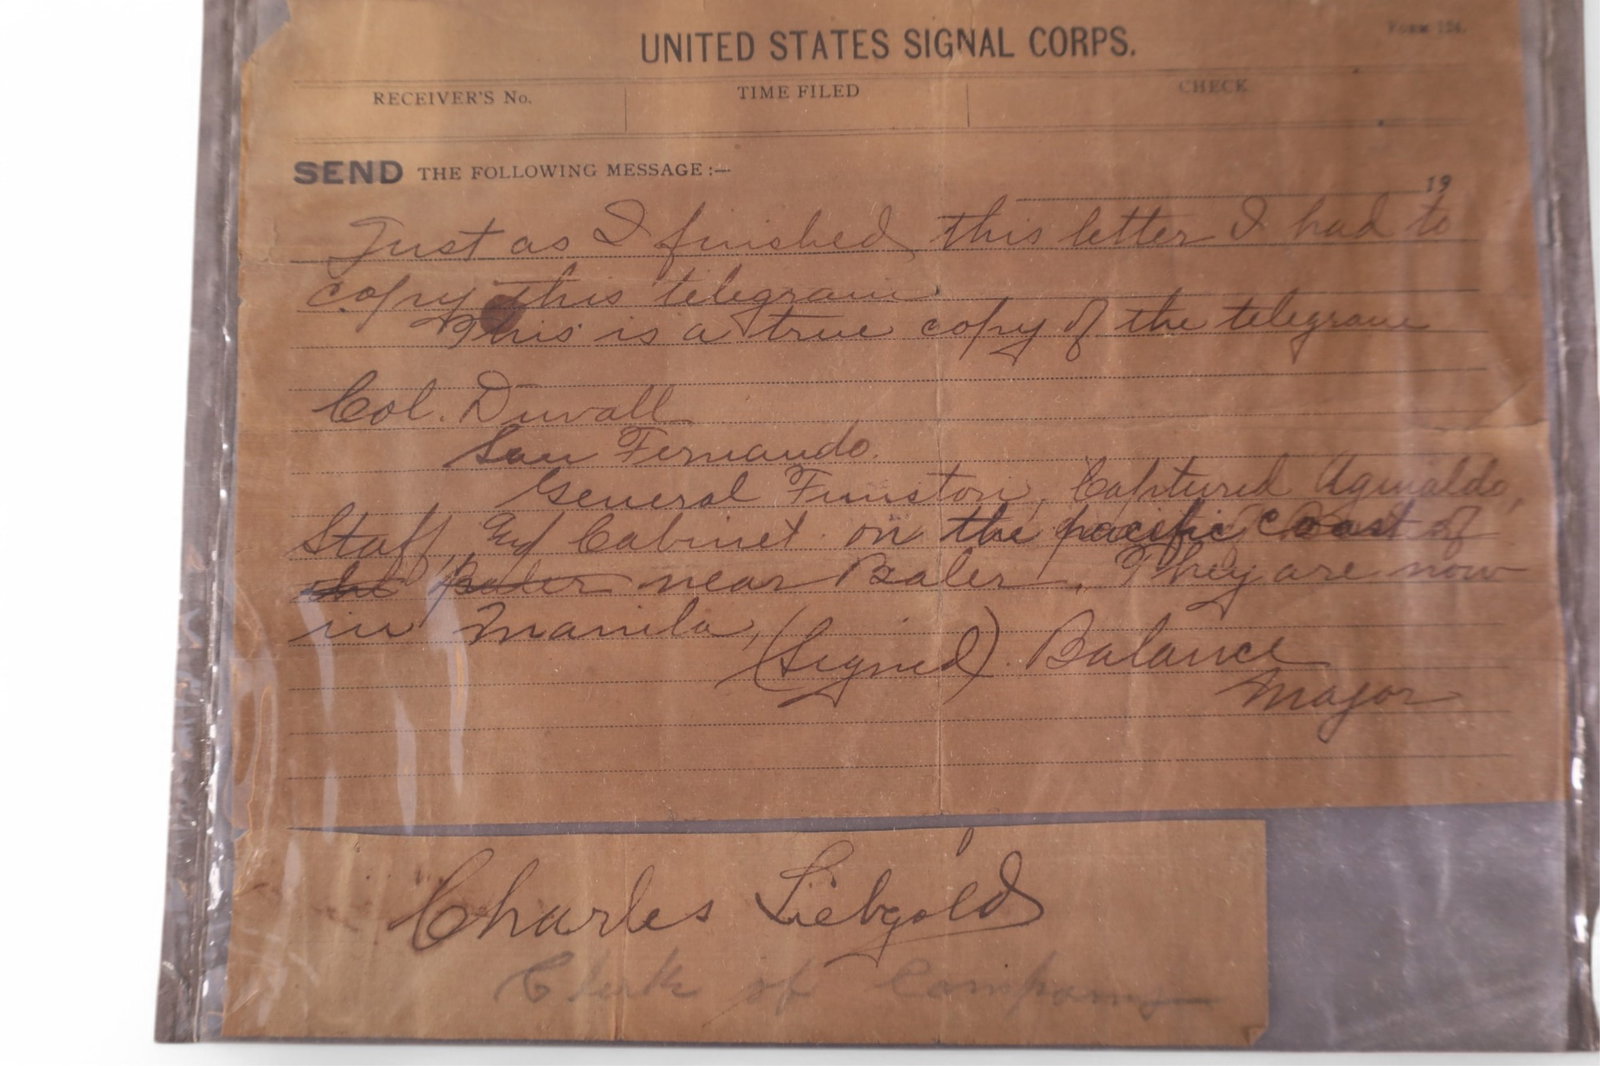 Form 124.
UNITED STATES SIGNAL CORPS.
RECEIVER'S No. TIME FILED CHECK
SEND THE FOLLOWING MESSAGE:—
19
Just as I finished this letter I had to
copy this telegram
This is a true copy of the telegram
Col. Duvall
San Fernando.
General Funston, Captured Aguialdo,
Staff, and Cabinet on the pacific coast of
the Baler near Baler. They are now
in Manila, (Signed). Balance
Major
Charles Liebgold
Clerk of Company